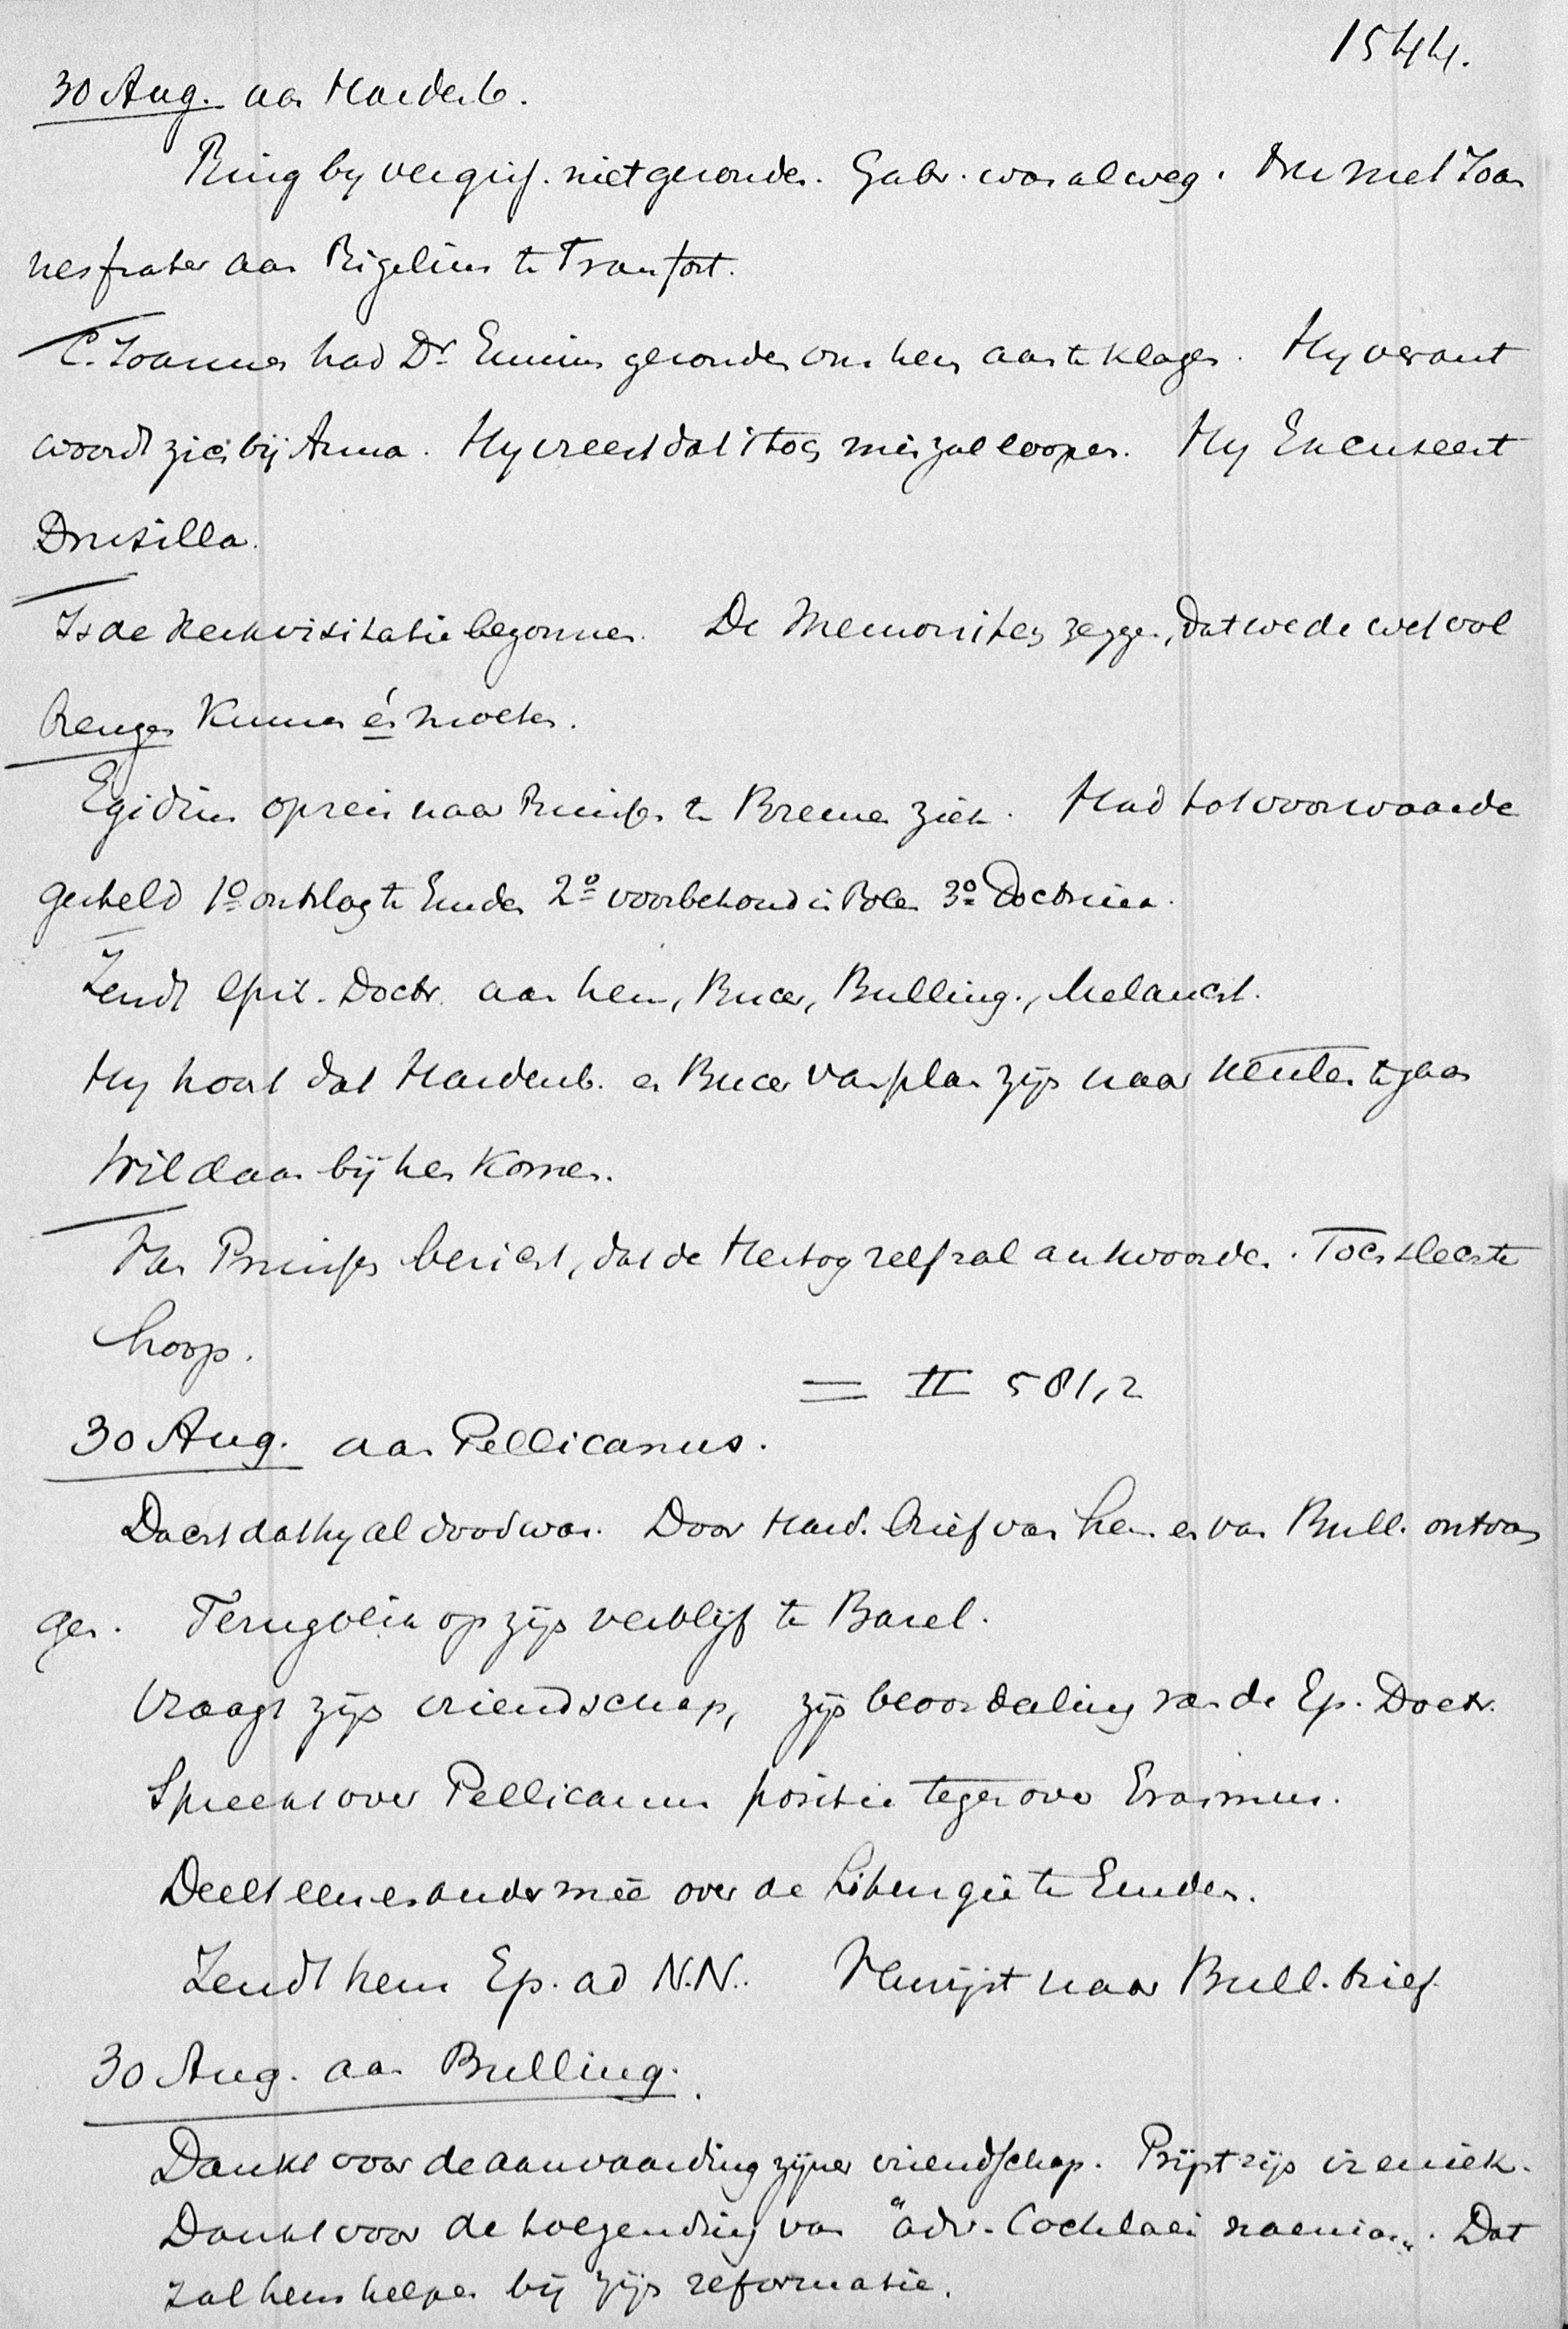 1544.
30 Aug. aan Hardenb.
Ring by vergis. niet gezonden. Gabr. was al weg. Nu met Joan
nes frater aan Rigelius te Francfort.
C. Joannes had Dr Emius gezonden om hem aan te klagen. Hy verant
woordt zich bij Anna. Hy vreest dat 't toch mis zal loopen. Hy Excuseert
Drusilla.
Is de Kerkvisitatie begonnen. De Mennoniten zeggen, dat we de wet vol
brengen Kunnen én moeten.
Egidius op reis naar Pruisen te Bremen ziek. Had tot voorwaarde
gesteld 1o ontslag te Emden 2o voorbehoud in Polen 3o Doctrina.
Zendt Epit. Doctr. aan hem, Bucer, Bulling., Melancht.
Hy hoort dat Hardenb. en Bucer van plan zijn naar Keulen te gaan
Wil daar bij hen Komen.
Van Pruisen bericht, dat de Hertog zelf zal antwoorden. Toch slechte
hoop.
= II 581,2
30 Aug. aan Pellicanus.
Dacht dat hy al dood was. Door Hard. brief van hem en van Bull. ontvan
gen. Terugblik op zijn verblijf te Basel.
Vraagt zijn vriendschap, zijn beoordeeling van de Ep. Doctr.
Spreekt over Pellicanus positie tegenover Erasmus.
Deelt een en ander mee over de Liturgie te Emden.
Zendt hem Ep. ad N.N. Verwijst naar Bull. brief.
30 Aug. aan Bulling.
Dankt voor de aanvaarding zijner vriendschap. Prijst zijn ireniek.
Dankt voor de toezending van "adv. Cochlaei naenias". Dat
zal hem helpen bij zijn reformatie.